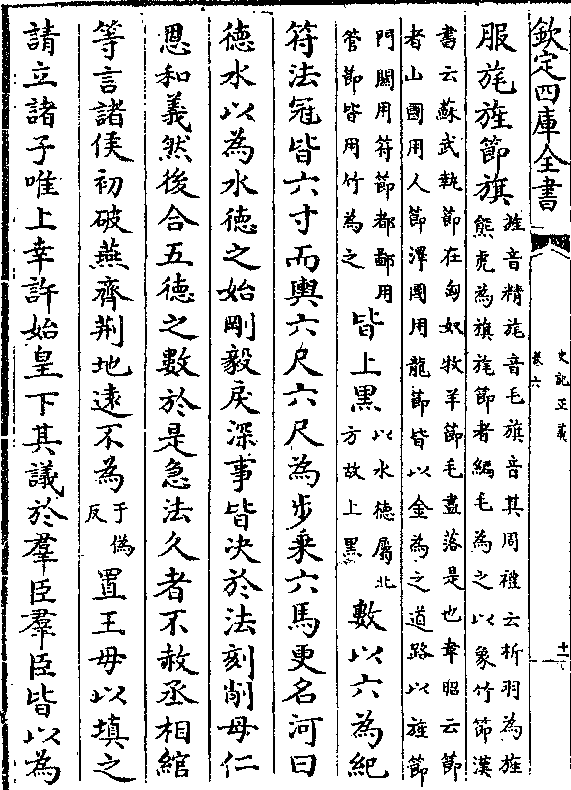 欽定四庫全書
史記正義
卷六
十一
服旄旌節旗
旌音精旄音毛旗音其周禮云析羽為旌
熊虎為旗旄節者編毛為之以象竹節漢
書云蘇武執節在匈奴牧羊節毛盡落是也韋昭云節
者山國用人節澤國用龍節皆以金為之道路以旌節
門關用符節都鄙用
管節皆用竹為之
皆上黑
以水德屬北
方故上黑
數以六為紀
符法冠皆六寸而輿六尺六尺為步乘六馬更名河曰
德水以為水德之始剛毅戾深事皆决於法刻削毋仁
恩和義然後合五德之數於是急法久者不赦丞相綰
等言諸侯初破燕齊荆地遠不為
于偽
反
置王毋以填之
請立諸子唯上幸許始皇下其議於羣臣羣臣皆以為